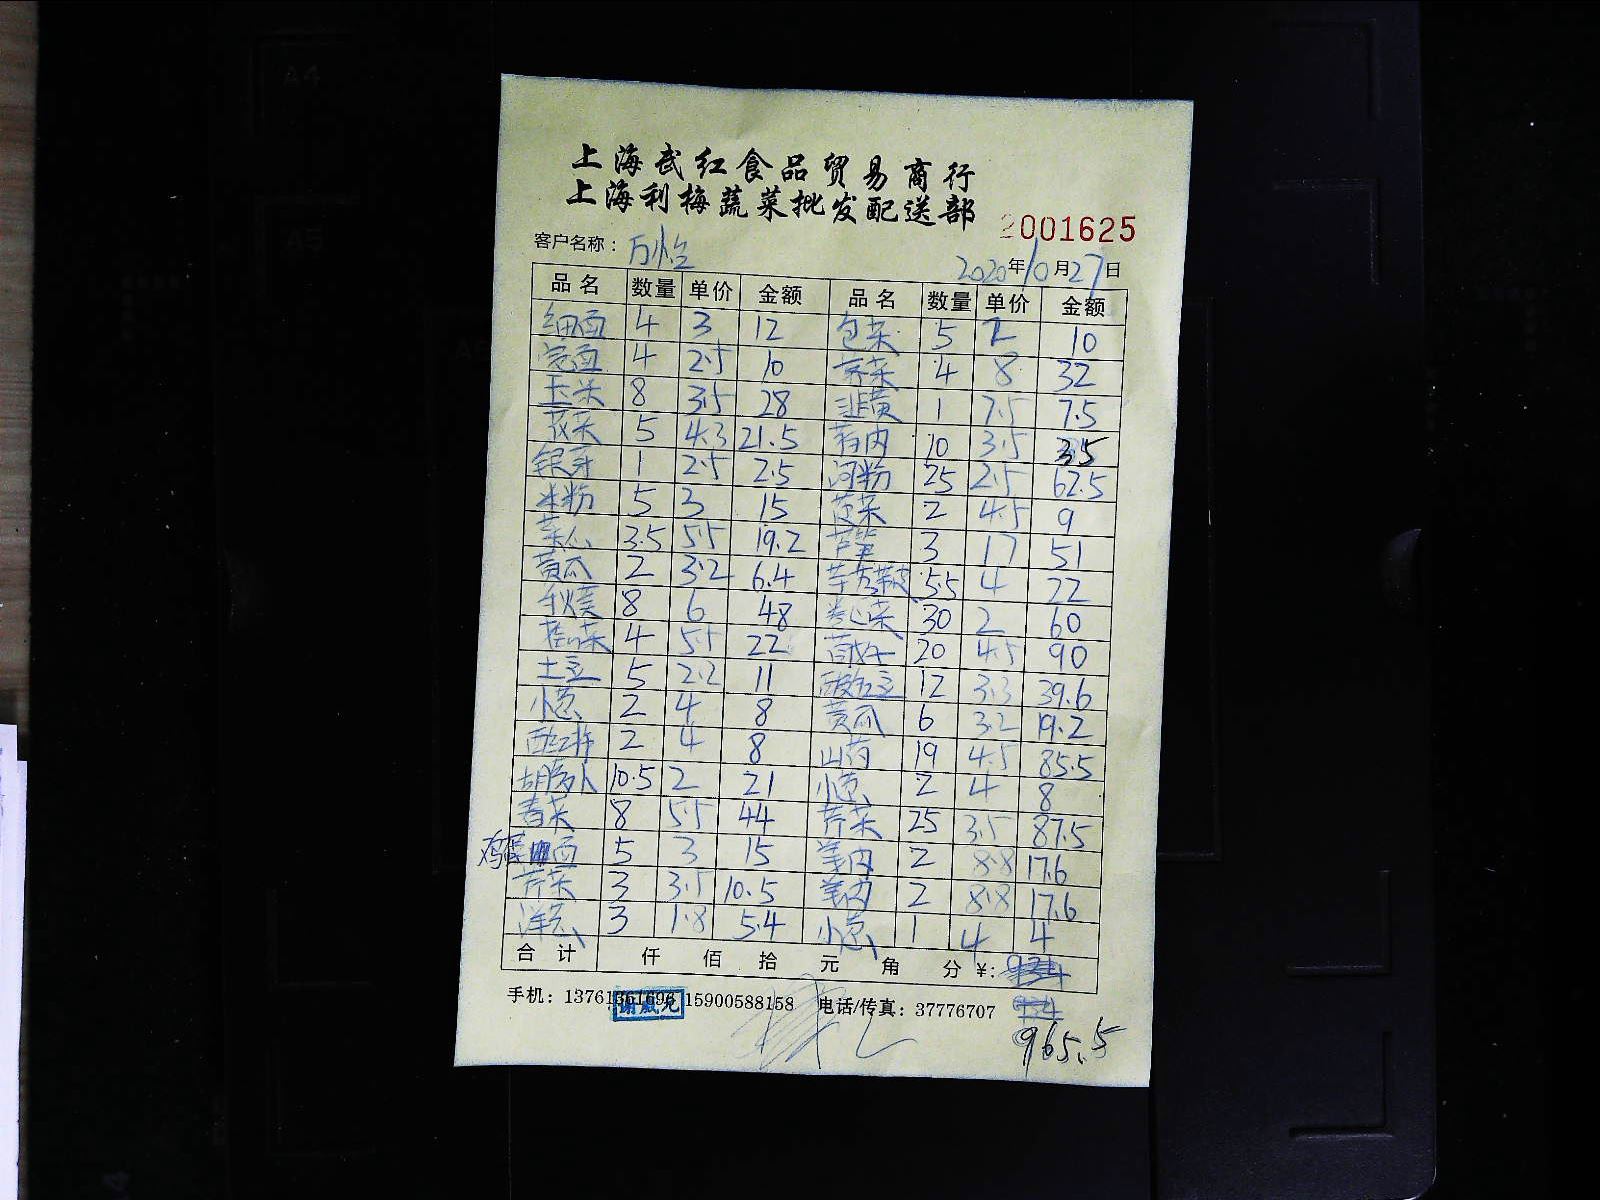 上海武红食品贸易商行
上海利梅蔬菜批发配送部
2001625
客户名称： 万怡 2020年10月27日
品名 数量 单价 金额 品名 数量 单价 金额
细面 4 3 12 包菜 5 2 10
宽面 4 2.5 10 荠菜 4 8 32
玉米 8 3.5 28 韭黄 1 7.5 7.5
花菜 5 4.3 21.5 10 3.5 35
银芽 1 2.5 2.5 河粉 25 2.5 62.5
米粉 5 3 15 菠菜 2 4.5 9
菜心 3.5 5.5 19.2 芦笋 3 17 51
黄瓜 2 3.2 6.4 5.5 4 22
秋葵 8 6 48 卷心菜 30 2 60
4 5.5 22 20 4.5 90
土豆 5 2.2 11 12 3.3 39.6
小葱 2 4 8 黄瓜 6 3.2 19.2
西红柿 2 4 8 山药 19 4.5 85.5
胡萝卜 10.5 2 21 小葱 2 4 8
8 5.5 44 芹菜 25 3.5 87.5
鸡蛋面 5 3 15 2 8.8 17.6
芹菜 3 3.5 10.5 2 8.8 17.6
洋葱 3 1.8 5.4 小葱 1 4 4
合计 仟 佰 拾 元 角 分 ¥:
手机：13761361696 15900588158 电话/传真：37776707
965.5